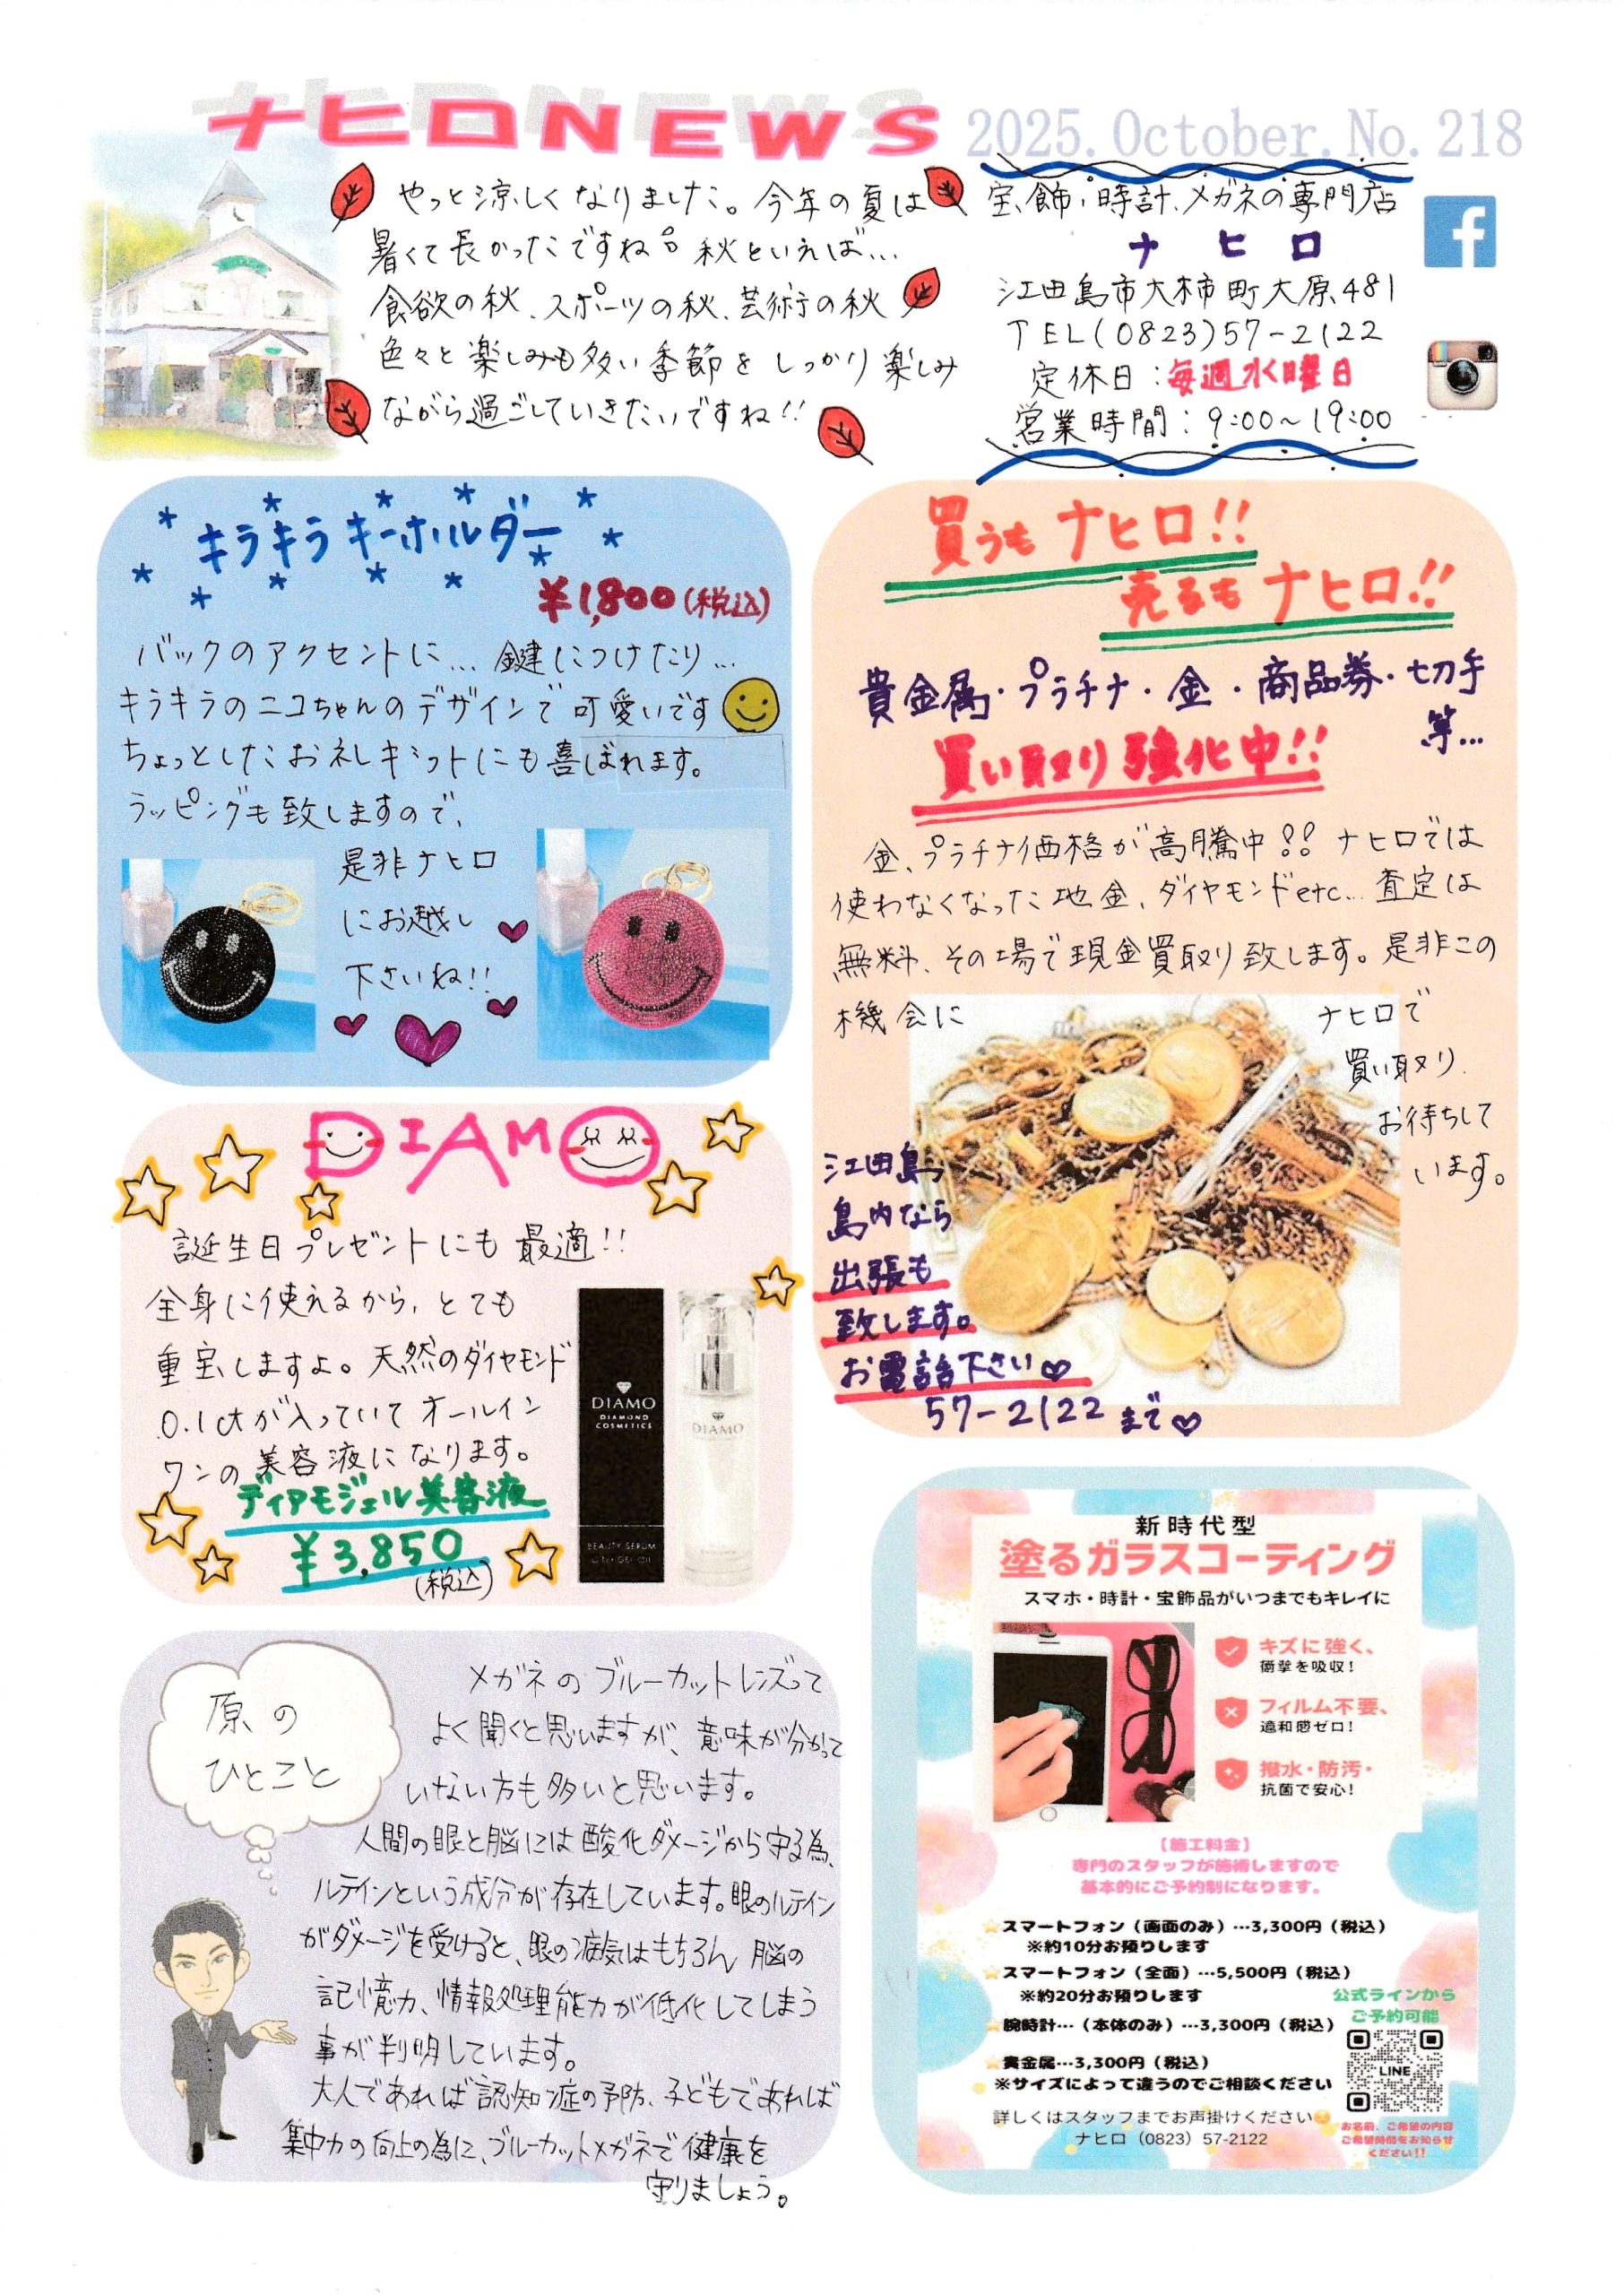 ナヒロNEWS
2025.October.No.218
やっと涼しくなりました。今年の夏は
暑くて長かったですね。秋といえば…
食欲の秋、スポーツの秋、芸術の秋
色々と楽しみも多い季節をしっかり楽しみ
ながら過ごしていきたいですね!!
宝飾・時計、メガネの専門店
ナヒロ
江田島市大柿町大原481
TEL(0823)57-2122
定休日:毎週水曜日
営業時間:9:00~19:00
キラキラキーホルダー
¥1,800(税込)
バックのアクセントに…鍵につけたり…
キラキラのニコちゃんのデザインで可愛いです
ちょっとしたお礼ギフトにも喜ばれます。
ラッピングも致しますので、
是非ナヒロ
にお越し
下さいね!!
買うもナヒロ!!
売るもナヒロ!!
貴金属・プラチナ・金・商品券・切手
等…
買い取り強化中!!
金、プラチナ価格が高騰中!!ナヒロでは
使わなくなった地金、ダイヤモンドetc…査定は
無料、その場で現金買取り致します。是非この
機会に ナヒロで
買い取り
お待ちして
います。
江田島
島内なら
出張も
致します。
お電話下さい♡
57-2122まで♡
DIAMO
誕生日プレゼントにも最適!!
全身に使えるから、とても
重宝しますよ。天然のダイヤモンド
0.1ctが入っていてオールイン
ワンの美容液になります。
ディアモジェル美容液
¥3,850
(税込)
DIAMO
DIAMOND
COSMETICS
BEAUTY SERUM
DIAMO
原の
ひとこと
メガネのブルーカットレンズって
よく聞くと思いますが、意味が分かって
いない方も多いと思います。
人間の眼と脳には酸化ダメージから守る為、
ルテインという成分が存在しています。眼のルテイン
がダメージを受けると、眼の病気はもちろん脳の
記憶力、情報処理能力が低化してしまう
事が判明しています。
大人であれば認知症の予防、子どもであれば
集中力の向上の為に、ブルーカットメガネで健康を
守りましょう。
新時代型
塗るガラスコーティング
スマホ・時計・宝飾品がいつまでもキレイに
キズに強く、
衝撃を吸収!
フィルム不要、
違和感ゼロ!
撥水・防汚・
抗菌で安心!
【施工料金】
専門のスタッフが施術しますので
基本的にご予約制になります。
スマートフォン(画面のみ)…3,300円(税込)
※約10分お預りします
スマートフォン(全面)…5,500円(税込)
※約20分お預りします
腕時計…(本体のみ)…3,300円(税込)
貴金属…3,300円(税込)
※サイズによって違うのでご相談ください
詳しくはスタッフまでお声掛けください
ナヒロ(0823)57-2122
公式ラインから
ご予約可能
LINE
お名前、ご希望の内容
ご希望時間をお知らせ
ください!!